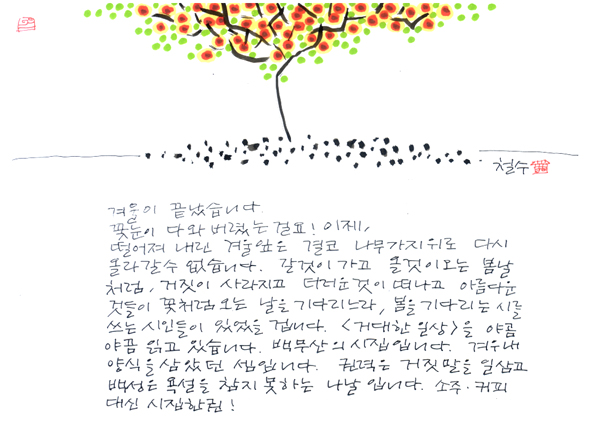 철수
겨울이 끝났습니다.
꽃눈이 다 와 버렸는 걸요! 이제,
떨어져 내린 겨울잎은 결코 나무가지위로 다시
올라갈수 없습니다. 갈것이가고 올것이오는 봄날
처럼, 거짓이 사라지고 더러운것이 떠나고 아름다운
것들이 꽃처럼 오는 날을 기다리느라, 봄을 기다리는 시를
쓰는 시인들이 있었을 겁니다. <거대한 일상>을 야곰
야곰 읽고 있습니다. 백무산의 시집입니다. 겨우내
양식을 삼았던 셈입니다. 권력은 거짓말을 일삼고
백성은 욕설을 참지 못하는 나날입니다. 소주·커피
대신 시집한권!